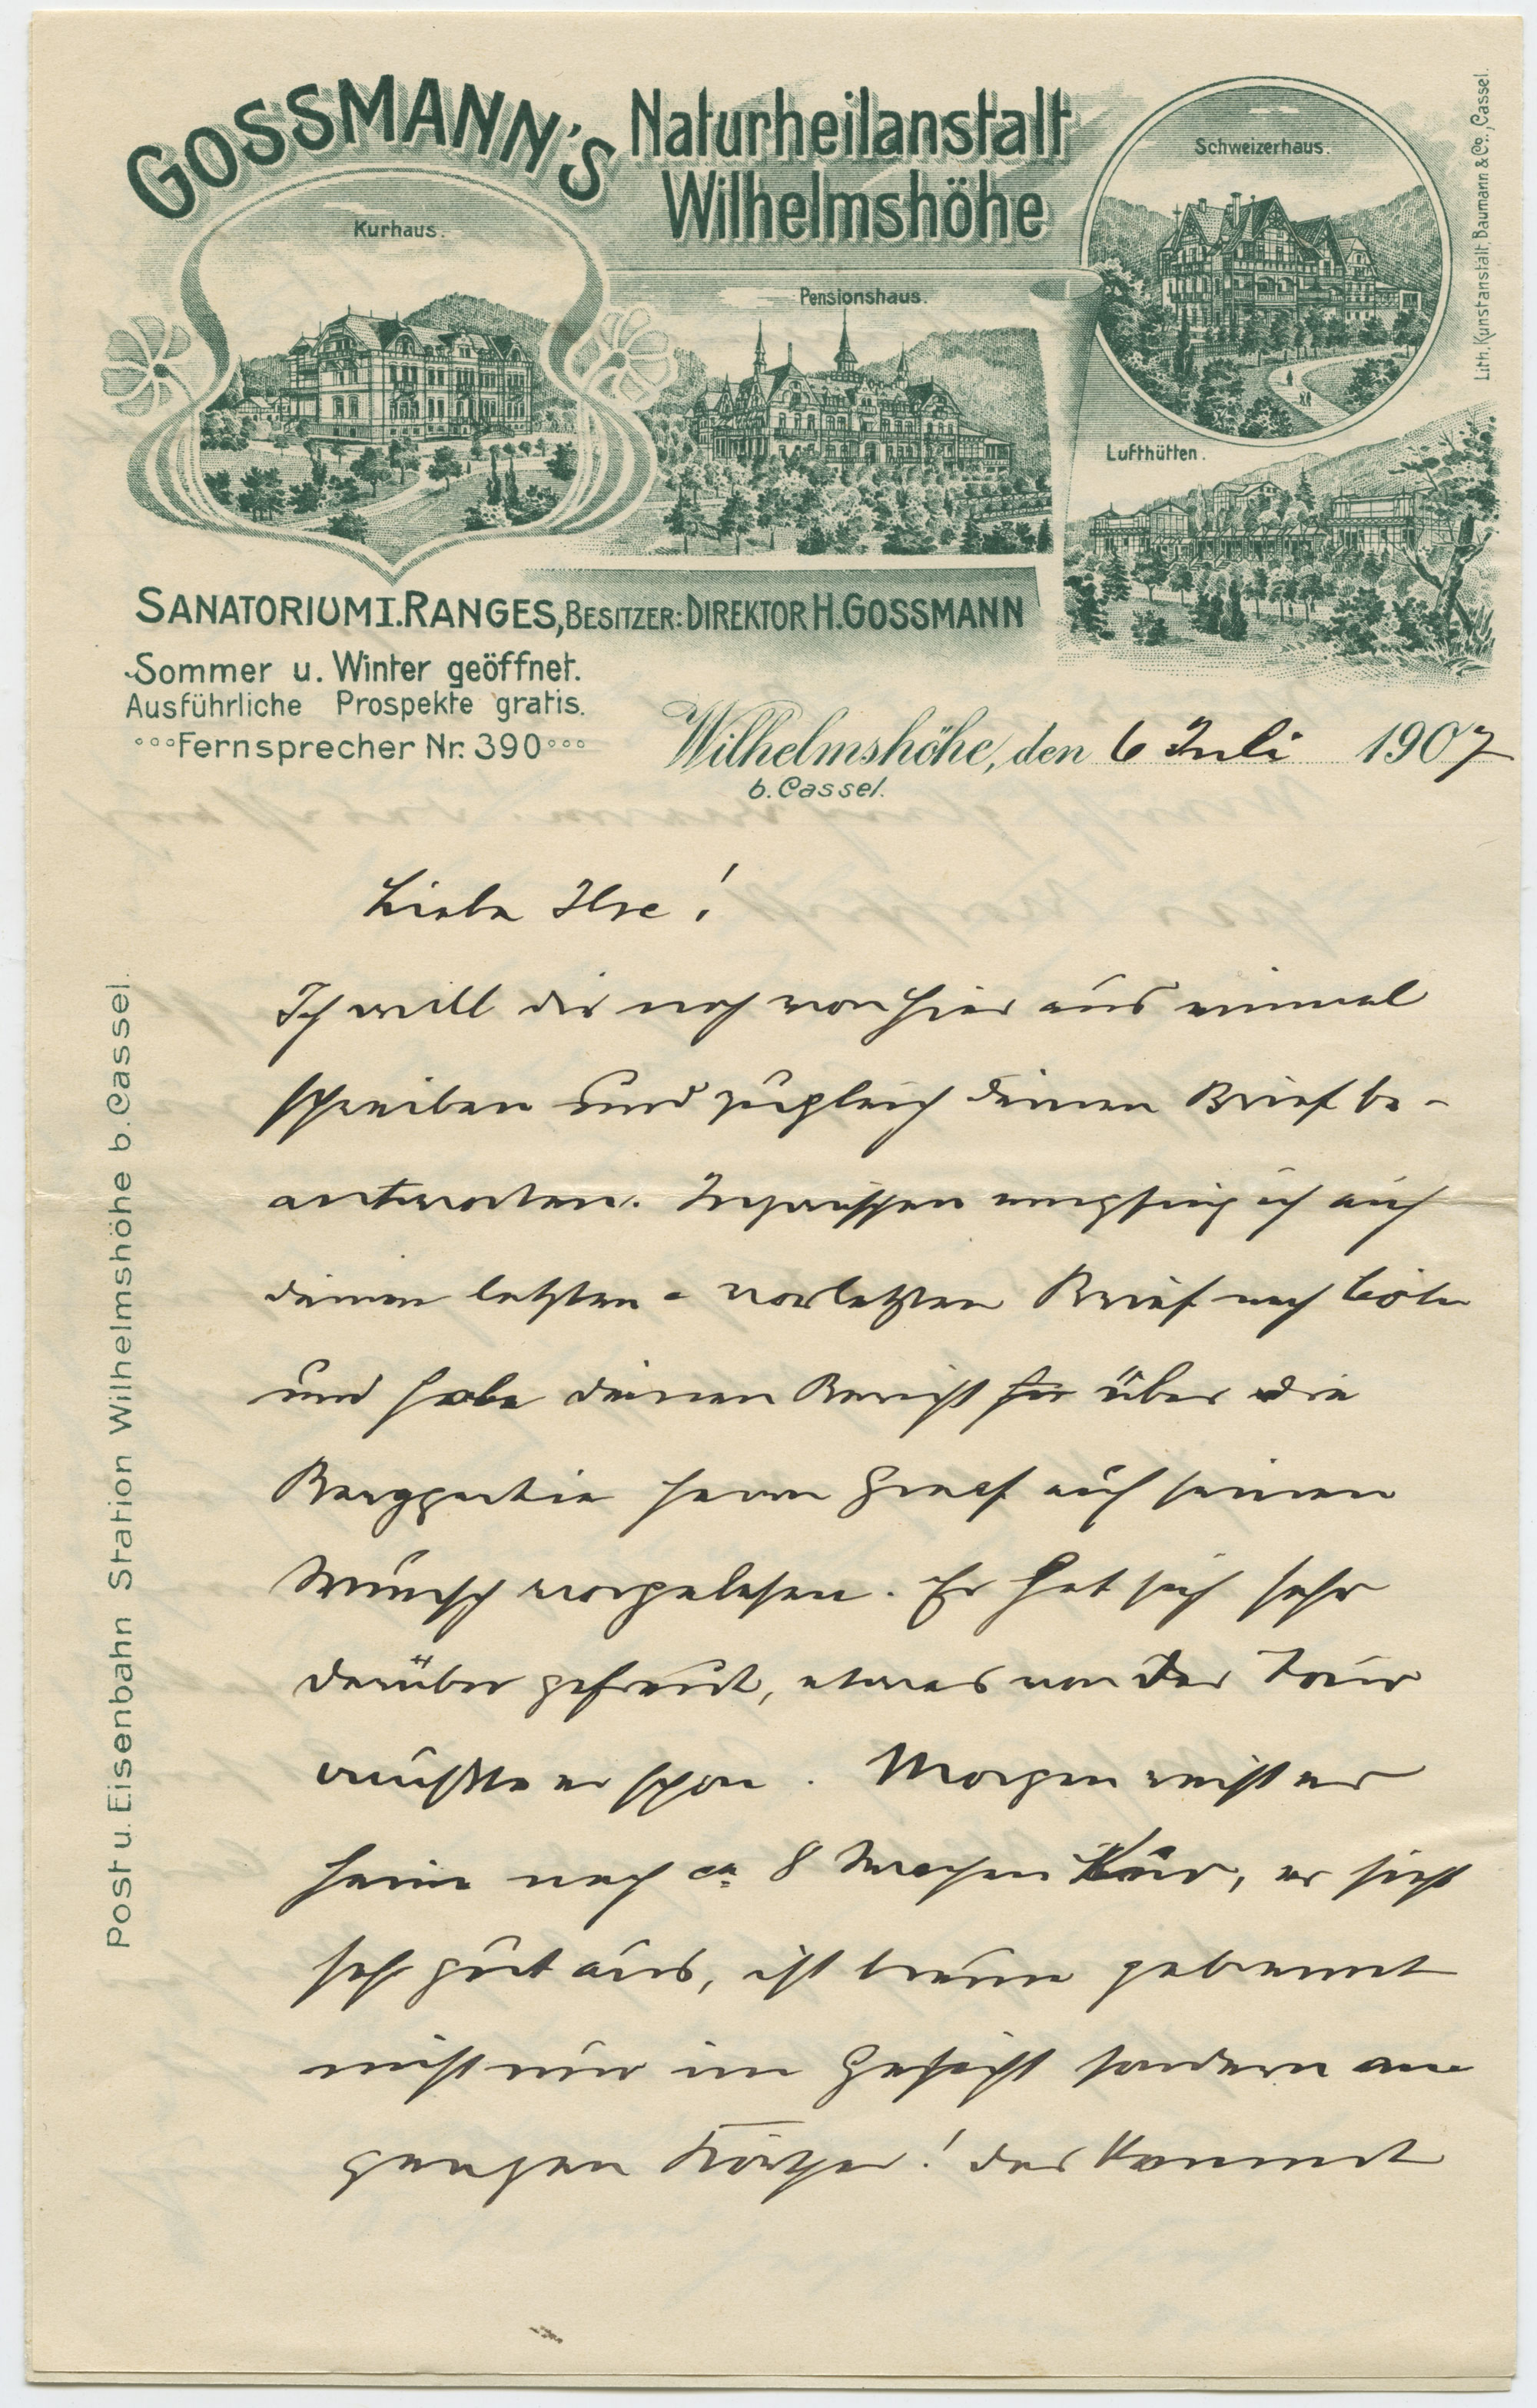 GOSSMANN'S Naturheilanstalt
Wilhelmshöhe
Kurhaus.
Pensionshaus.
Schweizerhaus.
Lufthütten.
Lith. Kunstanstalt, Baumann & Co., Cassel.
SANATORIUM I. RANGES, BESITZER: DIREKTOR H. GOSSMANN
Sommer u. Winter geöffnet.
Ausführliche Prospekte gratis.
Fernsprecher Nr. 390
Wilhelmshöhe, den 6 Juli 1907
b. Cassel.
Post u. Eisenbahn Station Wilhelmshöhe b. Cassel.
Liebe Ilse!
Ich will dir noch von hier aus einmal
schreiben und zugleich deinen Brief be-
antworten. Inzwischen empfing ich auch
deinen letzten - vorletzten Brief nach Cöln
und habe deinen Bericht für über die
Bergpartie Herrn Graef auf seinen
Wunsch vorgelesen. Er hat sich sehr
darüber gefreut, etwas von der Tour
wußte er schon. Morgen reist er
heim nach ca 8 Wochen Kur, er sieht
sehr gut aus, ist braun gebrannt
nicht nur im Gesicht sondern am
ganzen Körper! das kommt